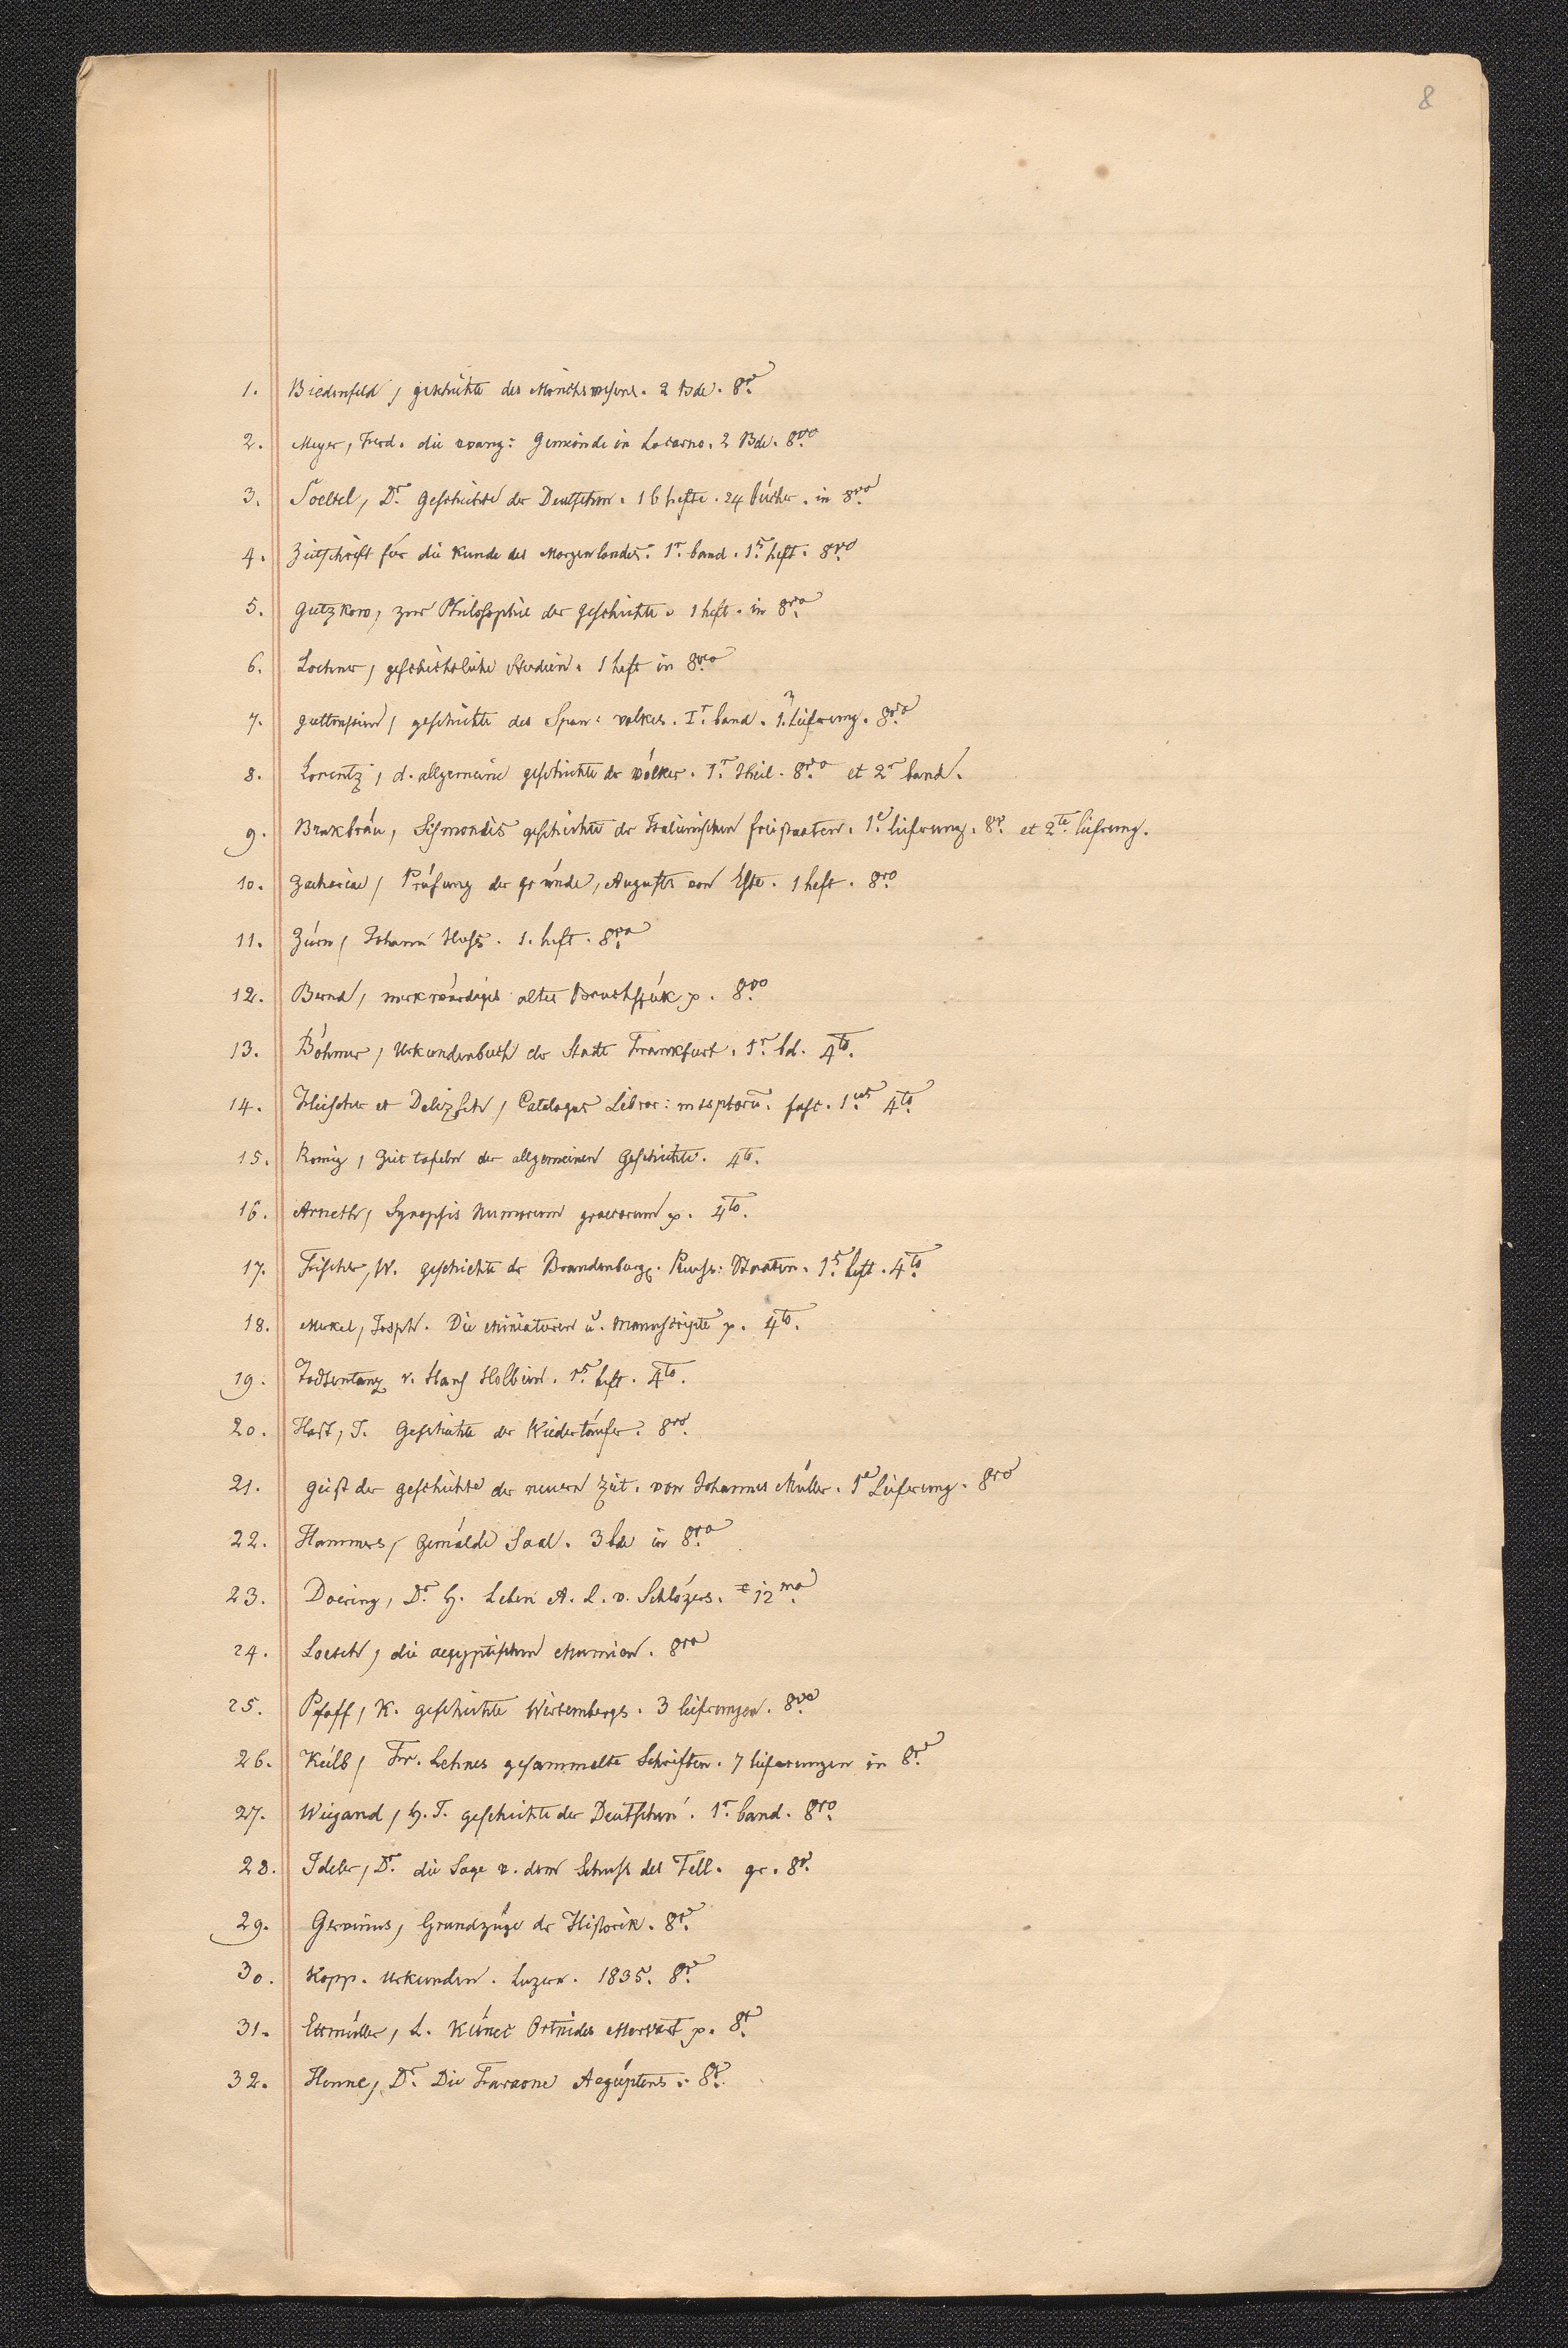 8
1. Biedenfeld, geschichte des Mönchswesens. 2 Bde. 8º.
2. Meyer, Ferd. die evang: Gemeinde in Locarno. 2 Bde. 8vo.
3. Soeltl, Dr. Geschichte der Deutschen. 16 hefte. 24 bücher. in 8vo.
4. Zeitschrift für die Kunde des Morgenlandes. 1r. band. 1s. heft. 8vo.
5. Gutzkow, zur Philosophie der geschichte. 1 heft. in 8vo.
6. Lochner, geschichtliche Studien. 1 heft in 8vo.
7. geschichte des Span: volkes. Ir. band. 1. Lieferung. 8vo.
8. Lorentz, d. allgemeine geschichte der völker. 1r. Theil. 8vo. et 2r. band.
9. Brukbräu, Sismondis geschichte der Italienischen freistaaten. 1e. lieferung. 8º. et 2te. lieferung.
10. Zachariae, Prüfung der gründe, Augusts von Este. 1 heft. 8vo.
11. Zürn, Johann Huss. 1. heft. 8vo.
12. Bernd, merkwürdiges altes Bruchstük p. 8vo.
13. Böhmer, Urkundenbuch der Stadt Frankfurt. 1r. bd. 4to.
14. Fleischer et Delizsch, Catalogus Libror: mssptorū. fasc. 1us. 4to.
15. Konig, Zeit tafeln der allgemeinen Geschichte. 4to.
16. Arneth, Synopsis Numorum graecorum p. 4to.
17. Fischer, W. geschichte der Brandenburg. Preuss: Staaten. 1s. heft. 4to.
18. Merkel, Joseph. Die Miniaturen u. Manuscripte p. 4to.
19. Todtentanz v. Hans Holbein. 1s. heft. 4to.
20. Hast, J. Geschichte der Wiedertäufer. 8vo.
21. geist der geschichte der neuern Zeit. von Johannes Müller. 1e Lieferung. 8vo
22. Hammers, Gemälde Saal. 3 bde in 8vo.
23. Doering, Dr. H. Leben A. L. v. Schlözers. 12mo.
24. Loesch, die aegyptischen Mumien. 8vo
25. Pfaff, K. geschichte Wirtembergs. 3 lieferungen. 8vo.
26. Keilb, Fr. Lehnes gesammelte Schriften. 7 lieferungen in 8º.
27. Wiegand, H. J. geschichte der Deutschen. 1r. band. 8vo.
28. Ideler, Dr. die Sage v. dem Schuss des Tell. gr. 8º.
29. Gervinus, Grundzüge der Historik. 8º.
30. Kopp. Urkunden. Luzern. 1835. 8º.
31. Ettmüller, L. Künec Ortnides Mervart p. 8º.
32. Henne, Dr. Die Faraone Aegüptens. 8º.